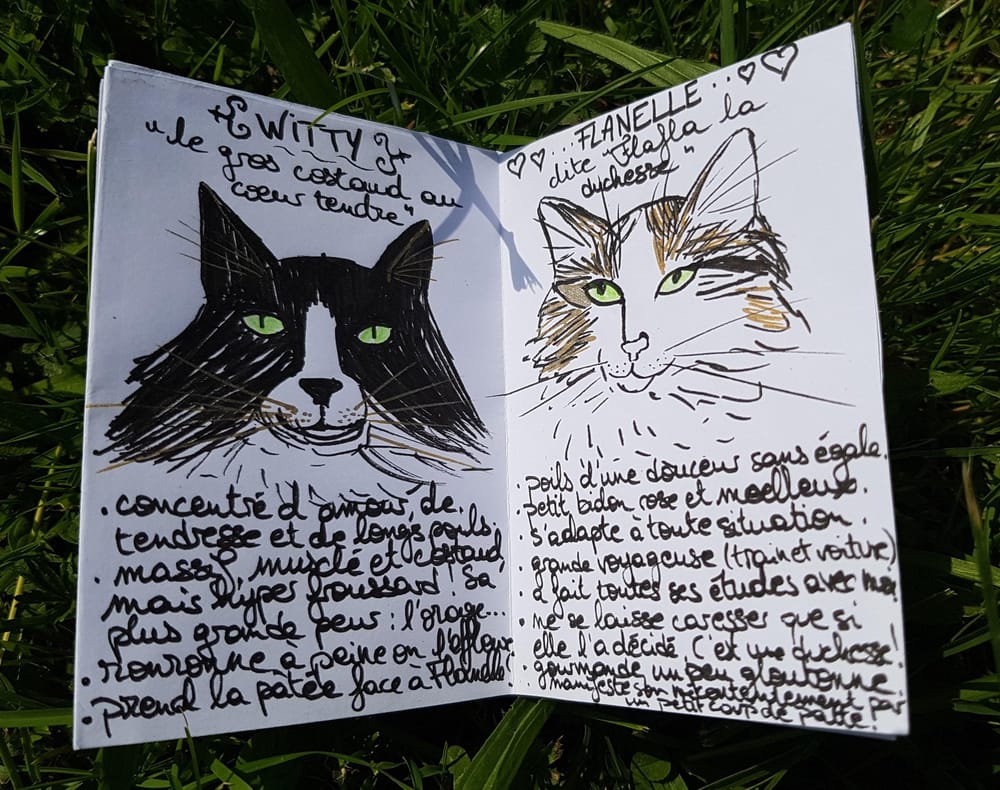 WITTY
"le gros costaud au
cœur tendre"
. concentré d'amour, de
tendresse et de longs poils.
. massif, musclé et costaud
mais hyper froussard! Sa
plus grande peur : l'orage...
. ronronne à peine on l'effleure.
. prend la pâtée face à Flanelle!
...FLANELLE..
dite "Flafla la
duchesse"
. poils d'une douceur sans égale.
. petit bidon rose et moelleux.
. s'adapte à toute situation.
. grande voyageuse (train et voiture)
. a fait toutes ses études avec moi
. ne se laisse caresser que si
elle l'a décidé. C'est une duchesse!
. gourmande un peu gloutonne.
. manifeste son mécontentement par
un petit coup de patte.